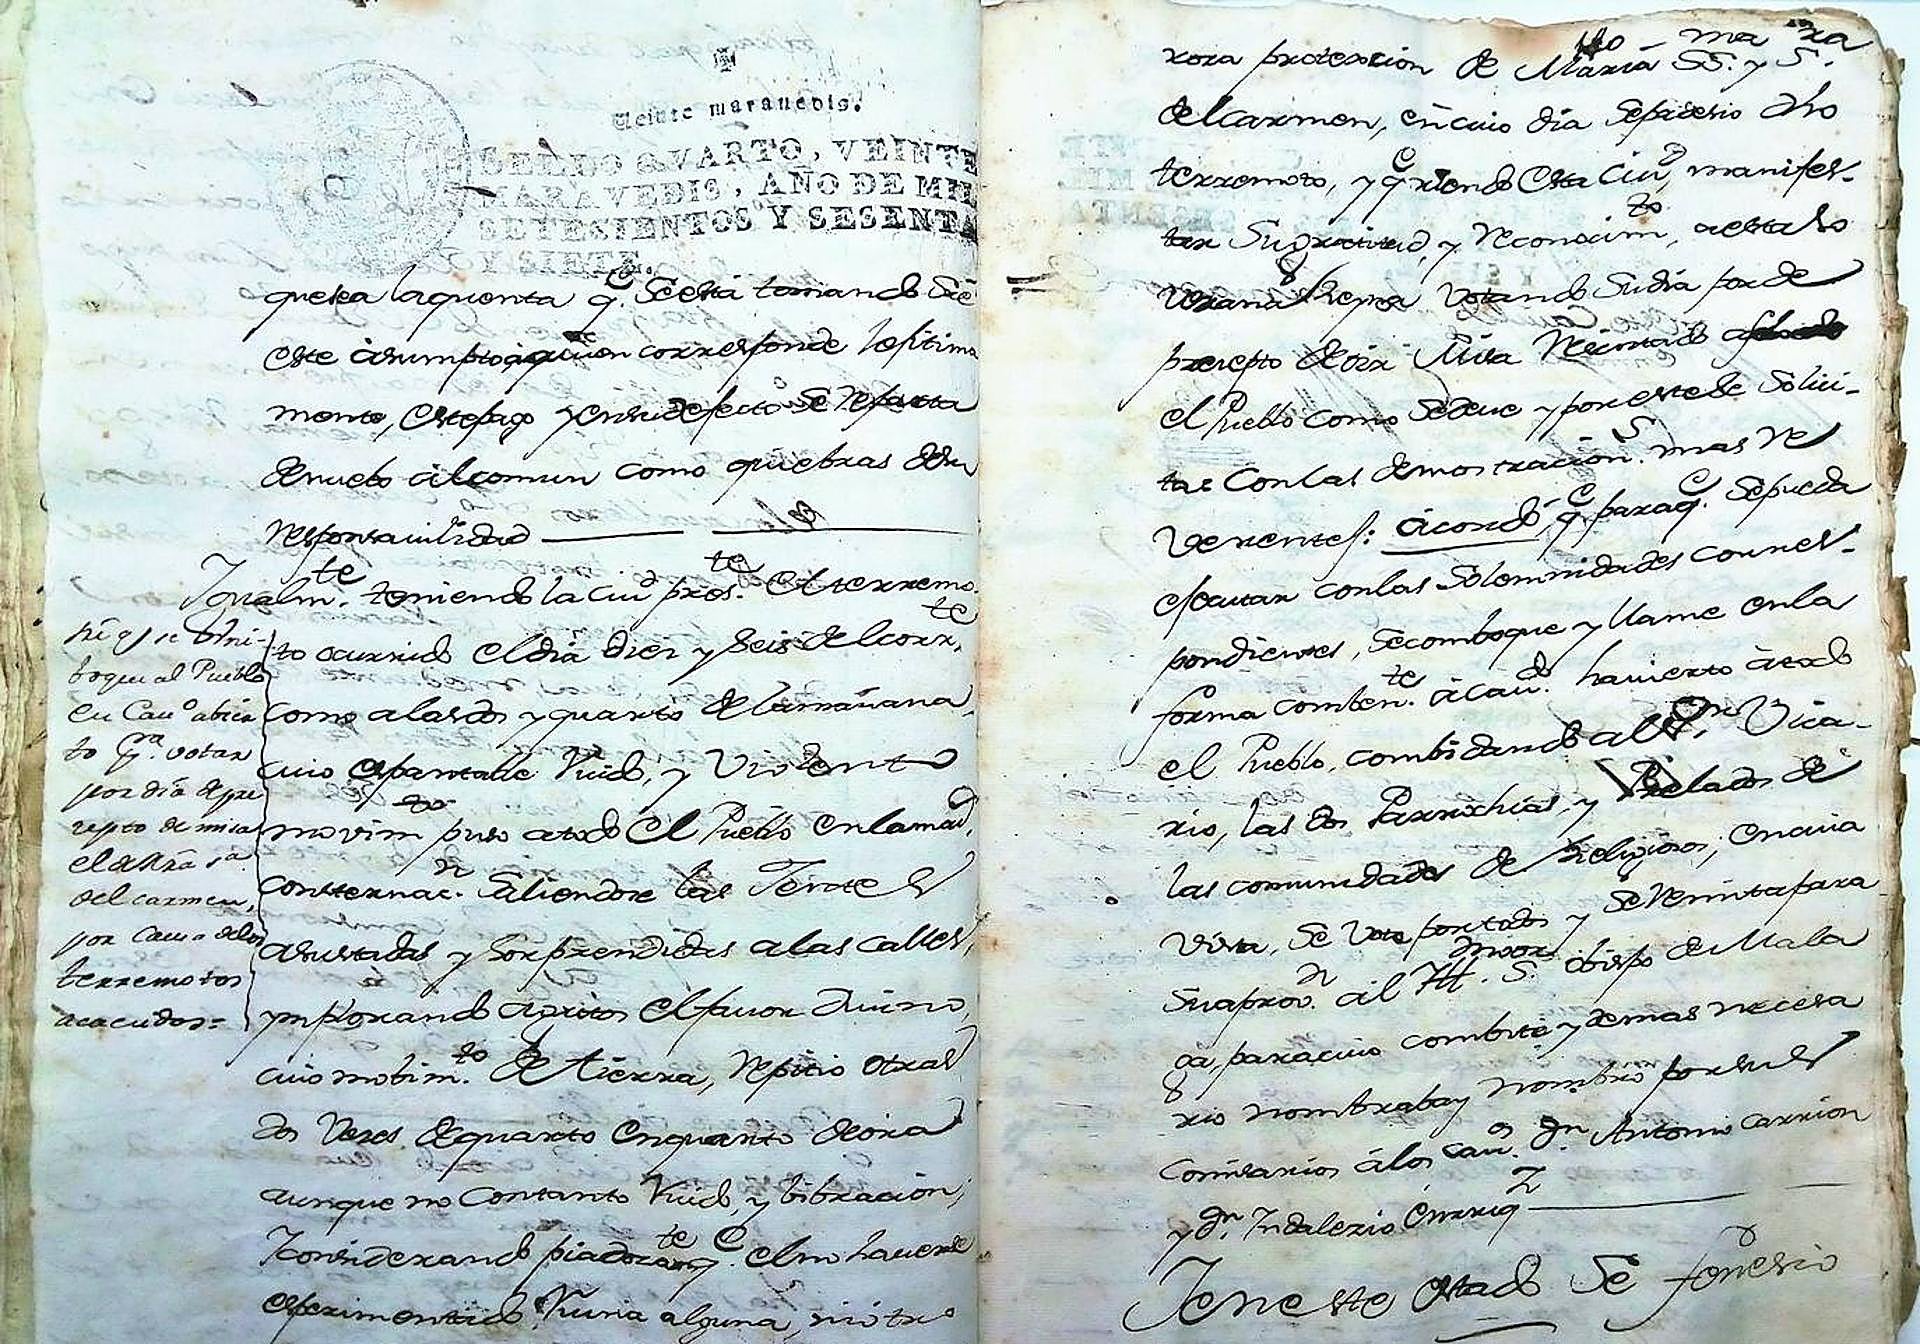 Veinte maravedis.
SELLO QVARTO, VEINTE
MARAVEDIS, AÑO DE MIL
SETESIENTOS Y SESENTA
Y SIETE.
quesea laquenta q.e Seesta tomando Sre
este asumpto, aquien corresponde lexitima
mente, estepago yensudefecto Se Reparta
denuebo alcomun como quiebras desu
Responsavilidad
Igualm.te teniendo la Ciud pres.te el terremo
to ocurrido eldia diez y Seis del corr.te
como alasdos yquarto de lamañana,
cuio espantable Ruido, y Violento
movim.to puso atodo el Pueblo enlamaior
consternac.n Saliendose las Jentes
asustadas y Sorprendidas alas calles,
ynplorando agritos elfavor Divino,
cuio mobim.to de tierra, Repitio otras
dos Veces dequarto enquarto deora
aunque no contanto Ruido, y bibracion;
Yconsiderando piadosam.te q.e elno haverse
esperimentado Ruina alguna, niotro
Sre q.e se Conbi-
boque al Pueblo
en Cav.o abier
to p.ra votar
por dia de pre
zepto de misa
el de Nra Sra
del carmen,
por causa delos
terremotos
acaecidos=
rosa protexcion de Maria SS. y S.
delCarmen, encuio dia Sepadesio dho
terremoto, yq.e riendo esta Ciud, manifes-
tar Sugratitud, y Reconocim.to, aesta So
verana Reyna Votando Sudia porde
precepto deoir Misa
el Pueblo como Sedeve yporeste Se Solici-
tas Conlas demostracion.s mas Re
verentes: acordó, q.e paraq.e Sepueda
efectuar conlas Solemnidades corres-
pondientes, Secomboque y llame enla
forma comben.te acav.do havierto atodo
el Pueblo, combidando alS.or Vica-
rio, las dos Parrochias, y Prelados de
las comunidades de Religiosos; encuia
vista, Se Vote portodos y SeRemitapara
Suaprov.n al Ill. S. obispo de Mala
ga, paracuio combite y demas necesa
rio nombraba y nombró por sus
Comisarios alos cav.os Dn Antonio Carrion
y dn. Indalezio Enrriq.z
Jeneste estado Se fenesio